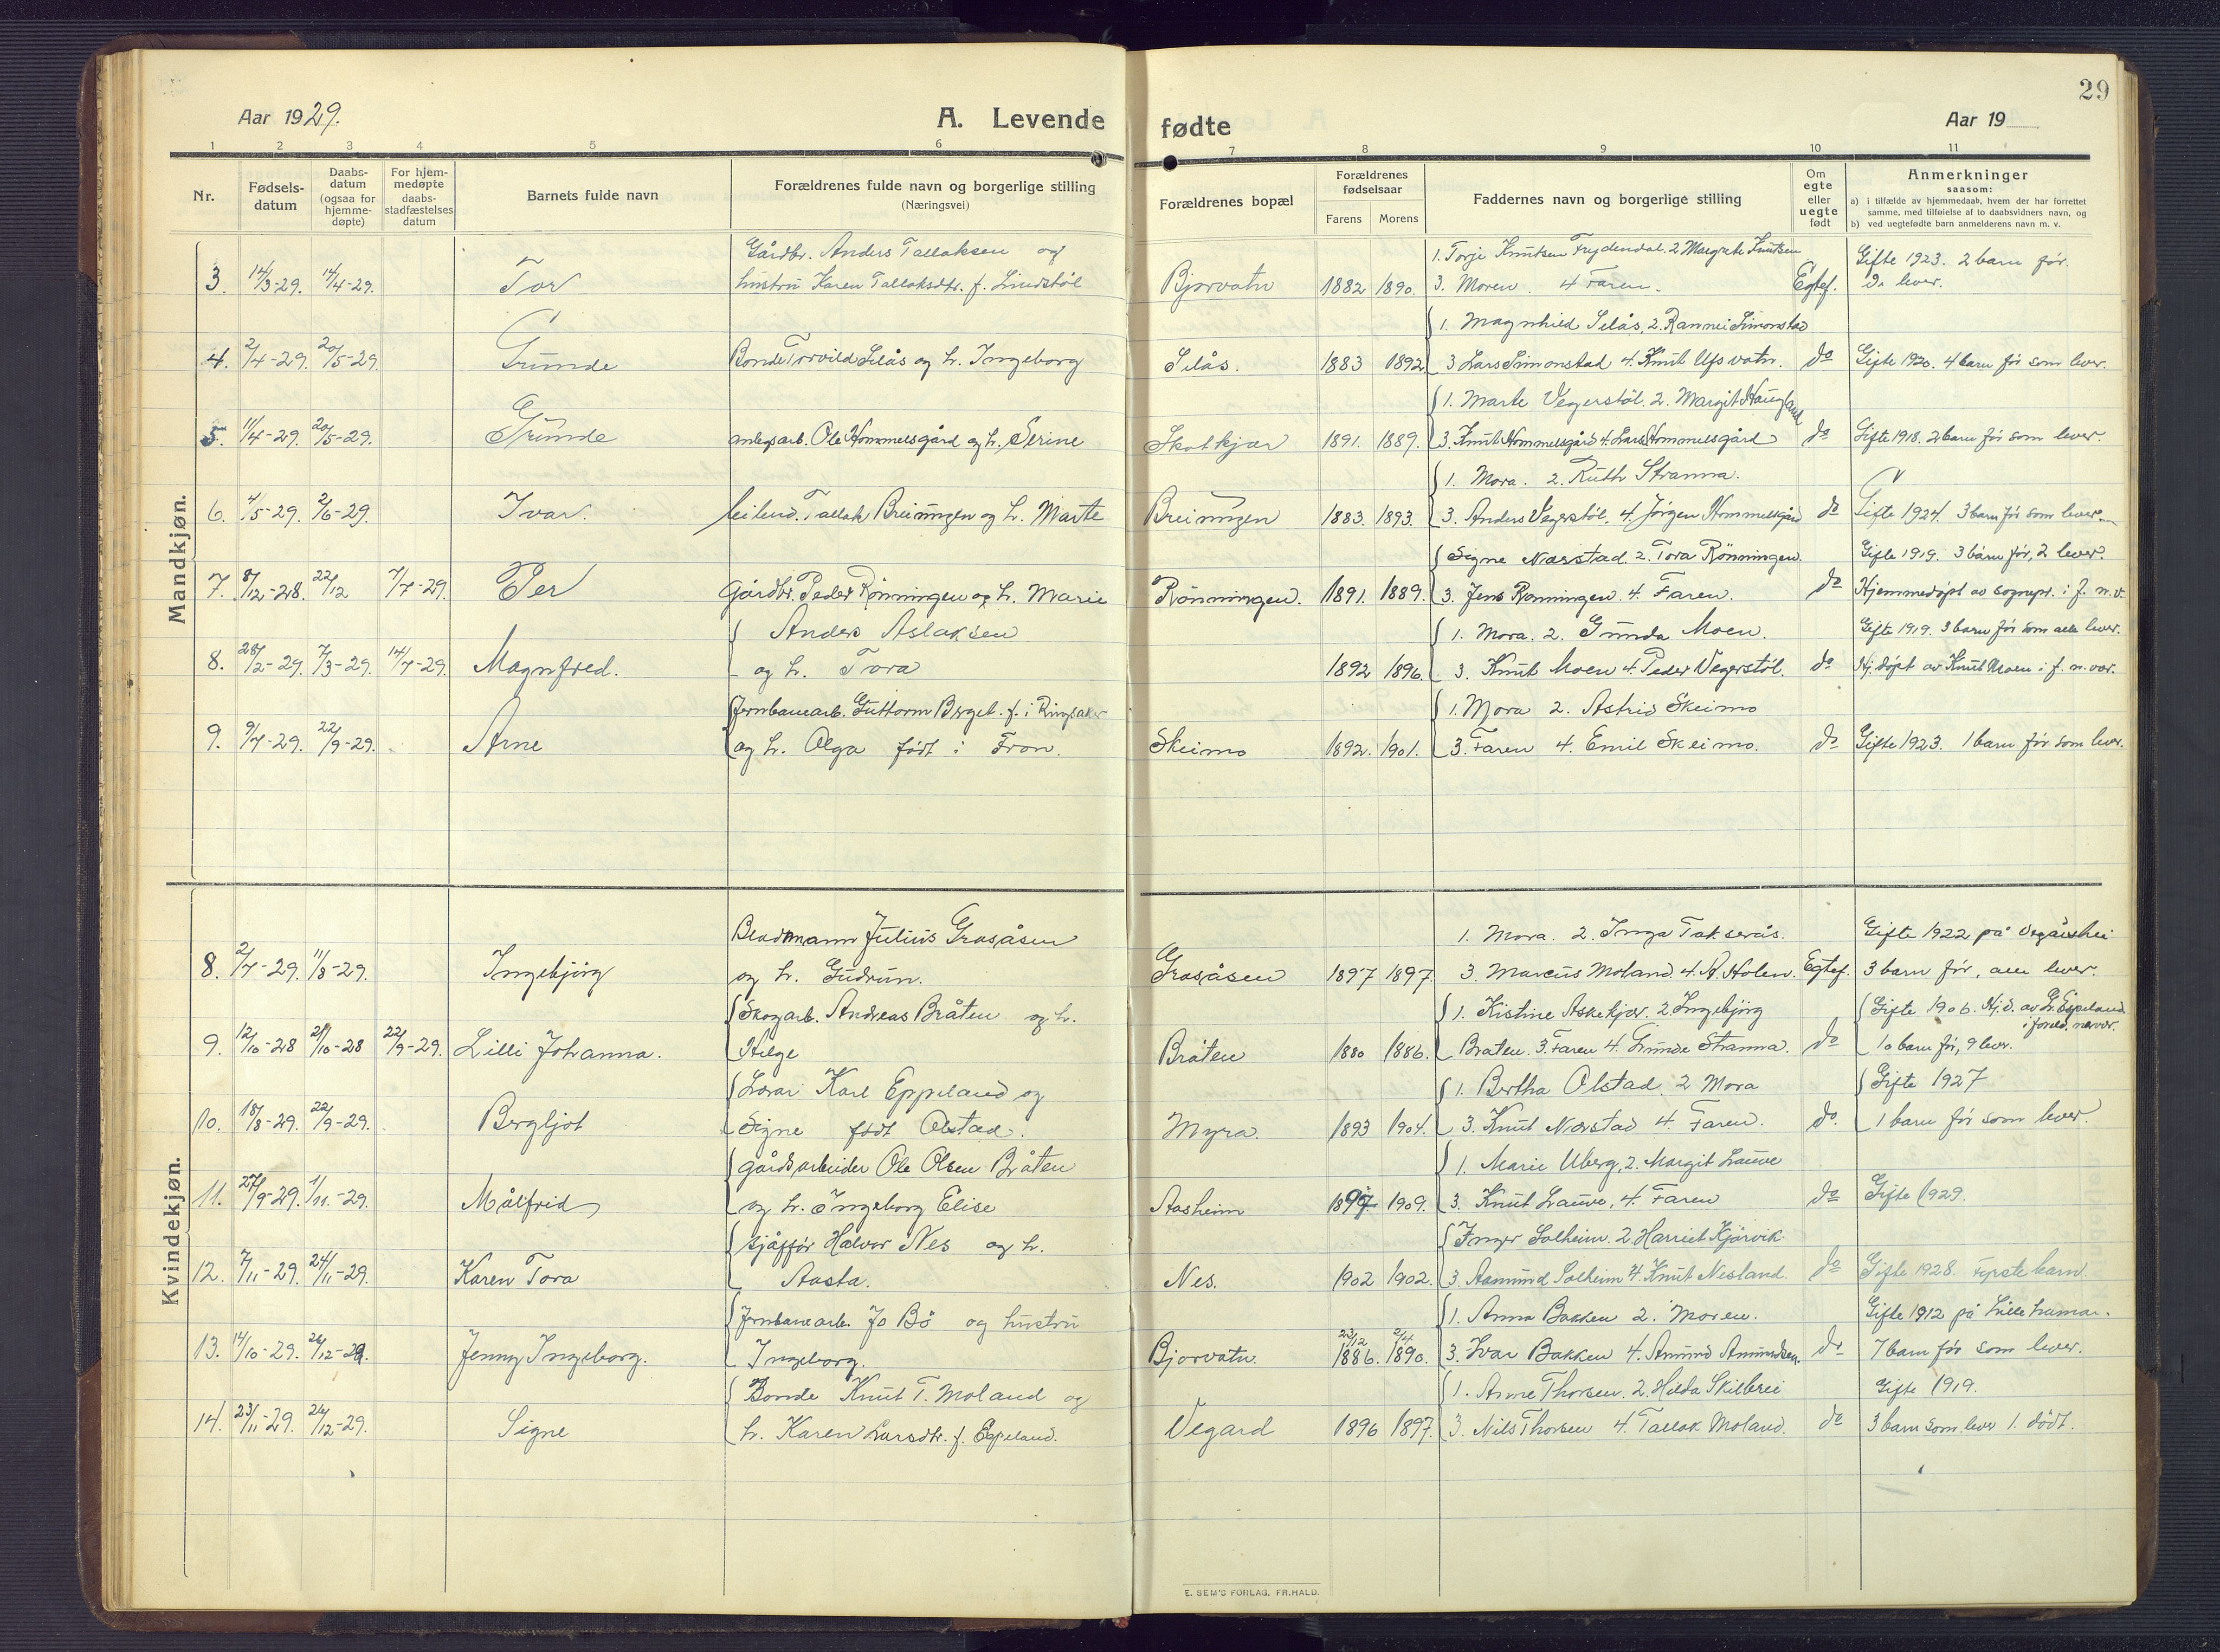 29
Aar 1929.
A. Levende fødte
Aar 19
1 2 3 4 5 6 7 8 9 10 11
Nr.
Fødsels-
datum
Daabs-
datum
(ogsaa for
hjemme-
døpte)
For hjem-
medøpte
daabs-
stadfæstelses
datum
Barnets fulde navn
Forældrenes fulde navn og borgerlige stilling
(Næringsvei)
Forældrenes bopæl
Forældrenes
fødselsaar
Farens Morens
Faddernes navn og borgerlige stilling
Om
egte
eller
uegte
født
Anmerkninger
saasom:
a) i tilfælde av hjemmedaab, hvem der har forrettet
samme, med tilføielse af to daabsvidners navn, og
b) ved uegtefødte barn anmelderens navn m. v.
Mandkjøn.
Gårdbr. Anders Tallaksen og 1. Torje Knutsen Frydendal. 2 Margrete Knutsen Gifte 1923. 2 barn før.
3. 14/3-29. 14/4-29. Tor hustru Karen Tallaksdtr. f. Lindstøl Bjorvatn 1882 1890. 3. Moren. 4 Faren. Egtef. Do lever.
1. Magnhild Selås, 2. Rannei Simonstad
4. 2/4-29. 20/5-29. Gunde Bonde Torvild Selås og h. Ingeborg Selås. 1883 1892 3 Lars Simonstad 4. Knut Ufsvatn. do Gifte 1920. 4 barn før som lever.
1. Marte Vegerstøl. 2. Margit Haugland
5. 11/4-29. 20/5-29. Gunde anlegsarb. Ole Hommelsgård og h. Serine Skotkjær 1891. 1889. 3. Knut Hommelsgård 4. Lars Hommelsgård do Gifte 1918. 2 barn før som lever.
1. Mora. 2. Ruth Stranna.
6. 4/5-29. 2/6-29. Ivar. leilend. Tallak Breiungen og h. Marte Breiungen 1883. 1893. 3. Anders Vegerstøl. 4. Jørgen Hommelsgård do Gifte 1924. 3 barn før som lever.
Signe Nærstad. 2. Tora Rønningen. Gifte 1919. 3 barn før, 2 lever.
7. 8/12-28. 22/12 7/7-29. Per Gårdbr. Peder Rønningen og h. Marie Rønningen. 1891. 1889. 3. Jens Rønningen. 4. Faren. do Hjemmedøpt av sognepr. i f. n. v.
Anders Aslaksen 1. Mora. 2. Gunda Moen. Gifte 1919. 3 barn før som alle lever.
8. 28/2-29. 7/3-29. 14/7-29. Magnfred. og h. Tora 1892 1896. 3. Knut Moen 4. Peder Vegerstøl. do Hj. døpt av Knut Moen i f. n. vær.
Jernbanearb. Guttorm Berget. f. i Ringsaker 1. Mora 2. Astrid Skeimo
9. 9/7-29. 22/9-29. Arne og h. Olga født i Fron. Skeimo 1892. 1901. 3. Faren 4. Emil Skeimo. do Gifte 1923. 1 barn før som lever.
Kvindekjøn.
Bladmann Julius Grasåsen 1. Mora. 2. Inga Takserås. Gifte 1922 på Vegårshei
8. 2/7-29. 11/8-29. Ingebjørg og h. Gudrun. Grasåsen 1897 1897. 3. Marcus Moland. 4. A. Holen. Egtef. 3 barn før, alle lever.
Skogarb. Andreas Bråten og h. 1. Kistine Askekjær. 2 Ingebjørg Gifte 1906. Hj. d. av Gr. Eppeland
i foreld. nærver.
9. 12/10-28 21/10-28 22/9-29. Lilli Johanna. Helge Bråten 1880 1886. Braten. 3. Faren 4. Gunde Stranna. do 10 barn før, 9 lever.
Lærar Karl Eppeland og 1. Bertha Olstad. 2 Mora Gifte 1927
10. 18/8-29. 22/9-29. Bergljot Signe født Olstad. Myra. 1893 1904. 3. Knut Nærstad 4. Faren. do. 1 barn før som lever.
gårdsarbeider Ole Olsen Bråten 1. Marie Uberg, 2. Margit Lauve
11. 27/9-29. 1/11.-29. Målfrid og h. Ingeborg Elise Aasheim 1897 1909. 3. Knut Lauve, 4. Faren do Gifte 1929.
sjåffør Halvor Nes og h. Inger Solheim. 2 Harriet Kjørvik
12. 7/11-29. 24/11-29. Karen Tora Aasta. Nes. 1902 1902. 3. Aamund Solheim 4. Knut Nesland. do Gifte 1928. Fyrste barn.
Jernbanearb. Jo Bö og hustru 1. Anna Bakken 2. Moren. Gifte 1912 på Lillehamar.
13. 14/10-29. 26/12-29. Jenny Ingeborg. Ingeborg. Bjorvatn. 23/12 1886. 2/4 1890. 3. Ivar Bakken 4. Amund Amundsen. do 7 barn før som lever.
Bonde Knut T. Moland og 1. Anne Thorsen. 2. Hilda Skilbrei Gifte 1919.
14. 23/11-29. 26/12-29. Signe h. Karen Larsdtr. f. Eppeland. Vegard 1896 1897. 3. Nils Thorsen 4. Tallak Moland. do 3 barn som lever 1. dödt.
E. SEM'S FORLAG, FR.HALD.